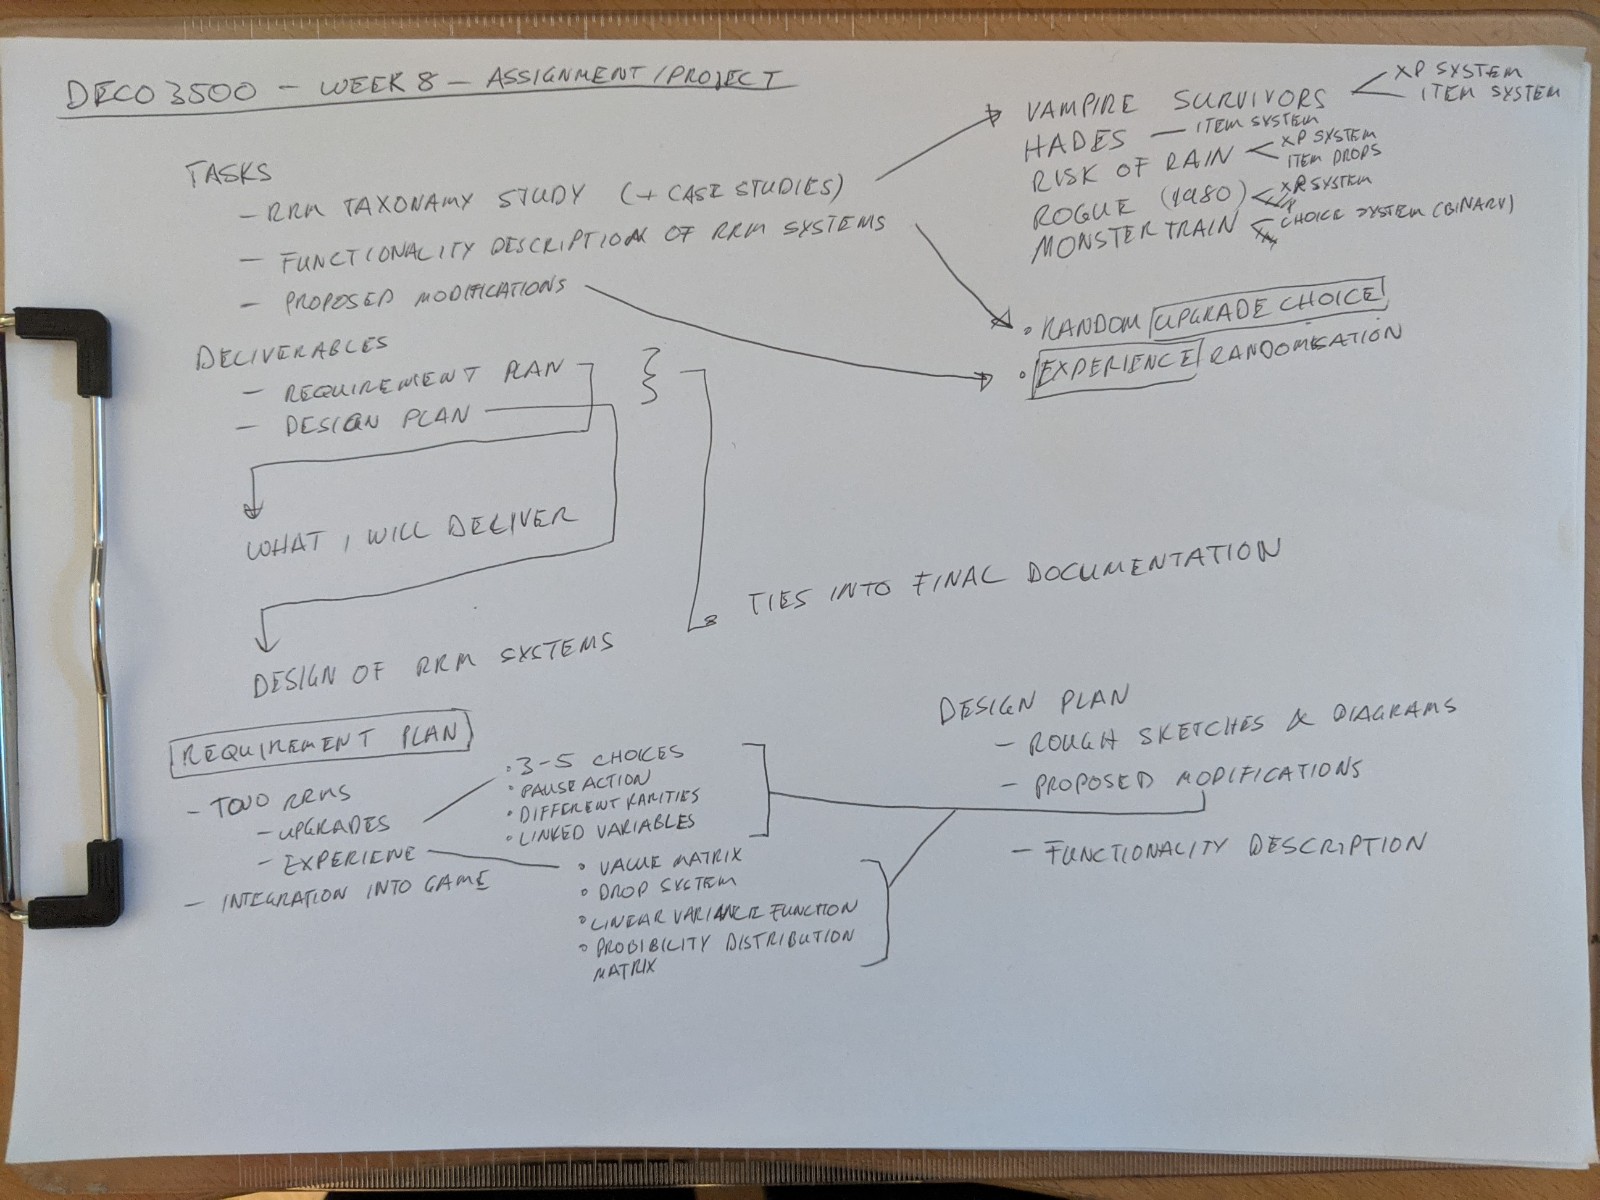 DECO3500 - WEEK 8 - ASSIGNMENT/PROJECT
TASKS
- RRM TAXONAMY STUDY (+ CASE STUDIES)
- FUNCTIONALITY DESCRIPTION OF RRM SYSTEMS
- PROPOSED MODIFICATIONS
VAMPIRE SURVIVORS
XP SYSTEM
ITEM SYSTEM
HADES - ITEM SYSTEM
RISK OF RAIN
XP SYSTEM
ITEM DROPS
ROGUE (1980)
XP SYSTEM
MONSTER TRAIN
CHOICE SYSTEM (BINARY)
• RANDOM UPGRADE CHOICE
• EXPERIENCE RANDOMISATION
DELIVERABLES
- REQUIREMENT PLAN
- DESIGN PLAN
WHAT I WILL DELIVER
DESIGN OF RRM SYSTEMS
TIES INTO FINAL DOCUMENTATION
REQUIREMENT PLAN
- TWO RRMS
- UPGRADES
- EXPERIENE
- INTEGRATION INTO GAME
• 3-5 CHOICES
• PAUSE ACTION
• DIFFERENT RARITIES
• LINKED VARIABLES
• VALUE MATRIX
• DROP SYSTEM
• LINEAR VARIANCE FUNCTION
• PROBIBILITY DISTRIBUTION
MATRIX
DESIGN PLAN
- ROUGH SKETCHES & DIAGRAMS
- PROPOSED MODIFICATIONS
- FUNCTIONALITY DESCRIPTION